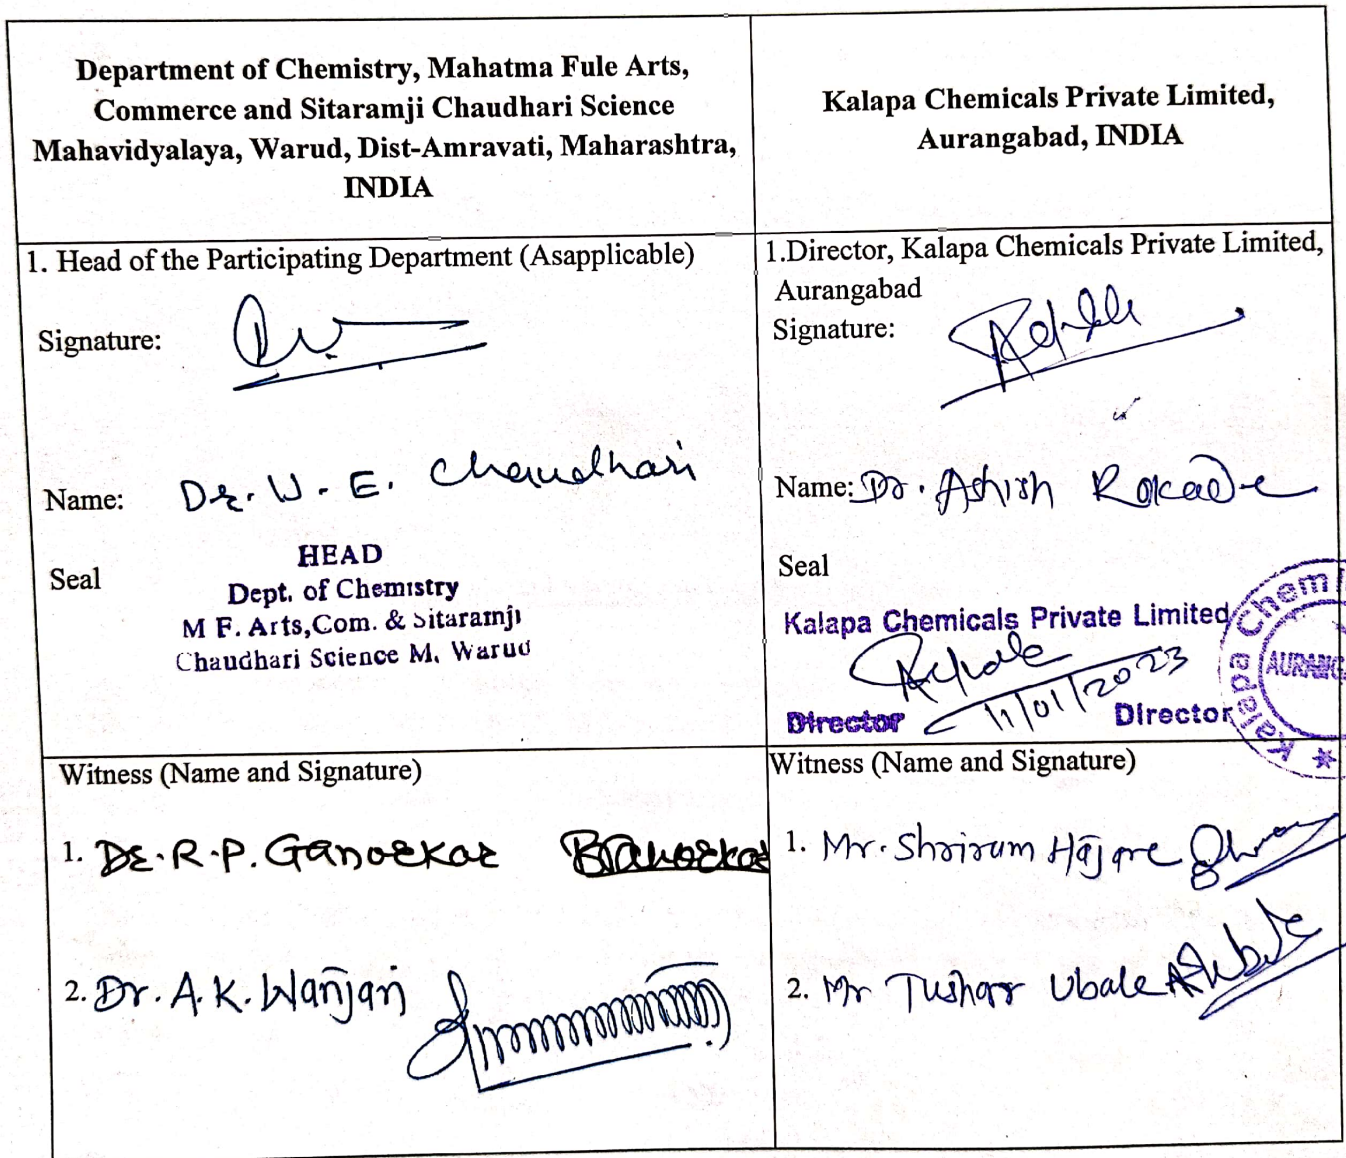 Department of Chemistry, Mahatma Fule Arts,
Commerce and Sitaramji Chaudhari Science
Mahavidyalaya, Warud, Dist-Amravati, Maharashtra,
INDIA
Kalapa Chemicals Private Limited,
Aurangabad, INDIA
1. Head of the Participating Department (Asapplicable)
Signature:
Name: Dr. W. E. Chaudhari
Seal
HEAD
Dept. of Chemistry
M F. Arts,Com. & Sitaramji
Chaudhari Science M. Warud
1.Director, Kalapa Chemicals Private Limited,
Aurangabad
Signature:
Name: Dr. Ashish Rokade
Seal
Kalapa Chemicals Private Limited
11/01/2023
Director Director
Kalapa Chem
AURANG
Witness (Name and Signature)
1. Dr. R. P. Ganorkar
2. Dr. A. K. Wanjari
Witness (Name and Signature)
1. Mr. Shriram Hajare
2. Mr Tushar Ubale